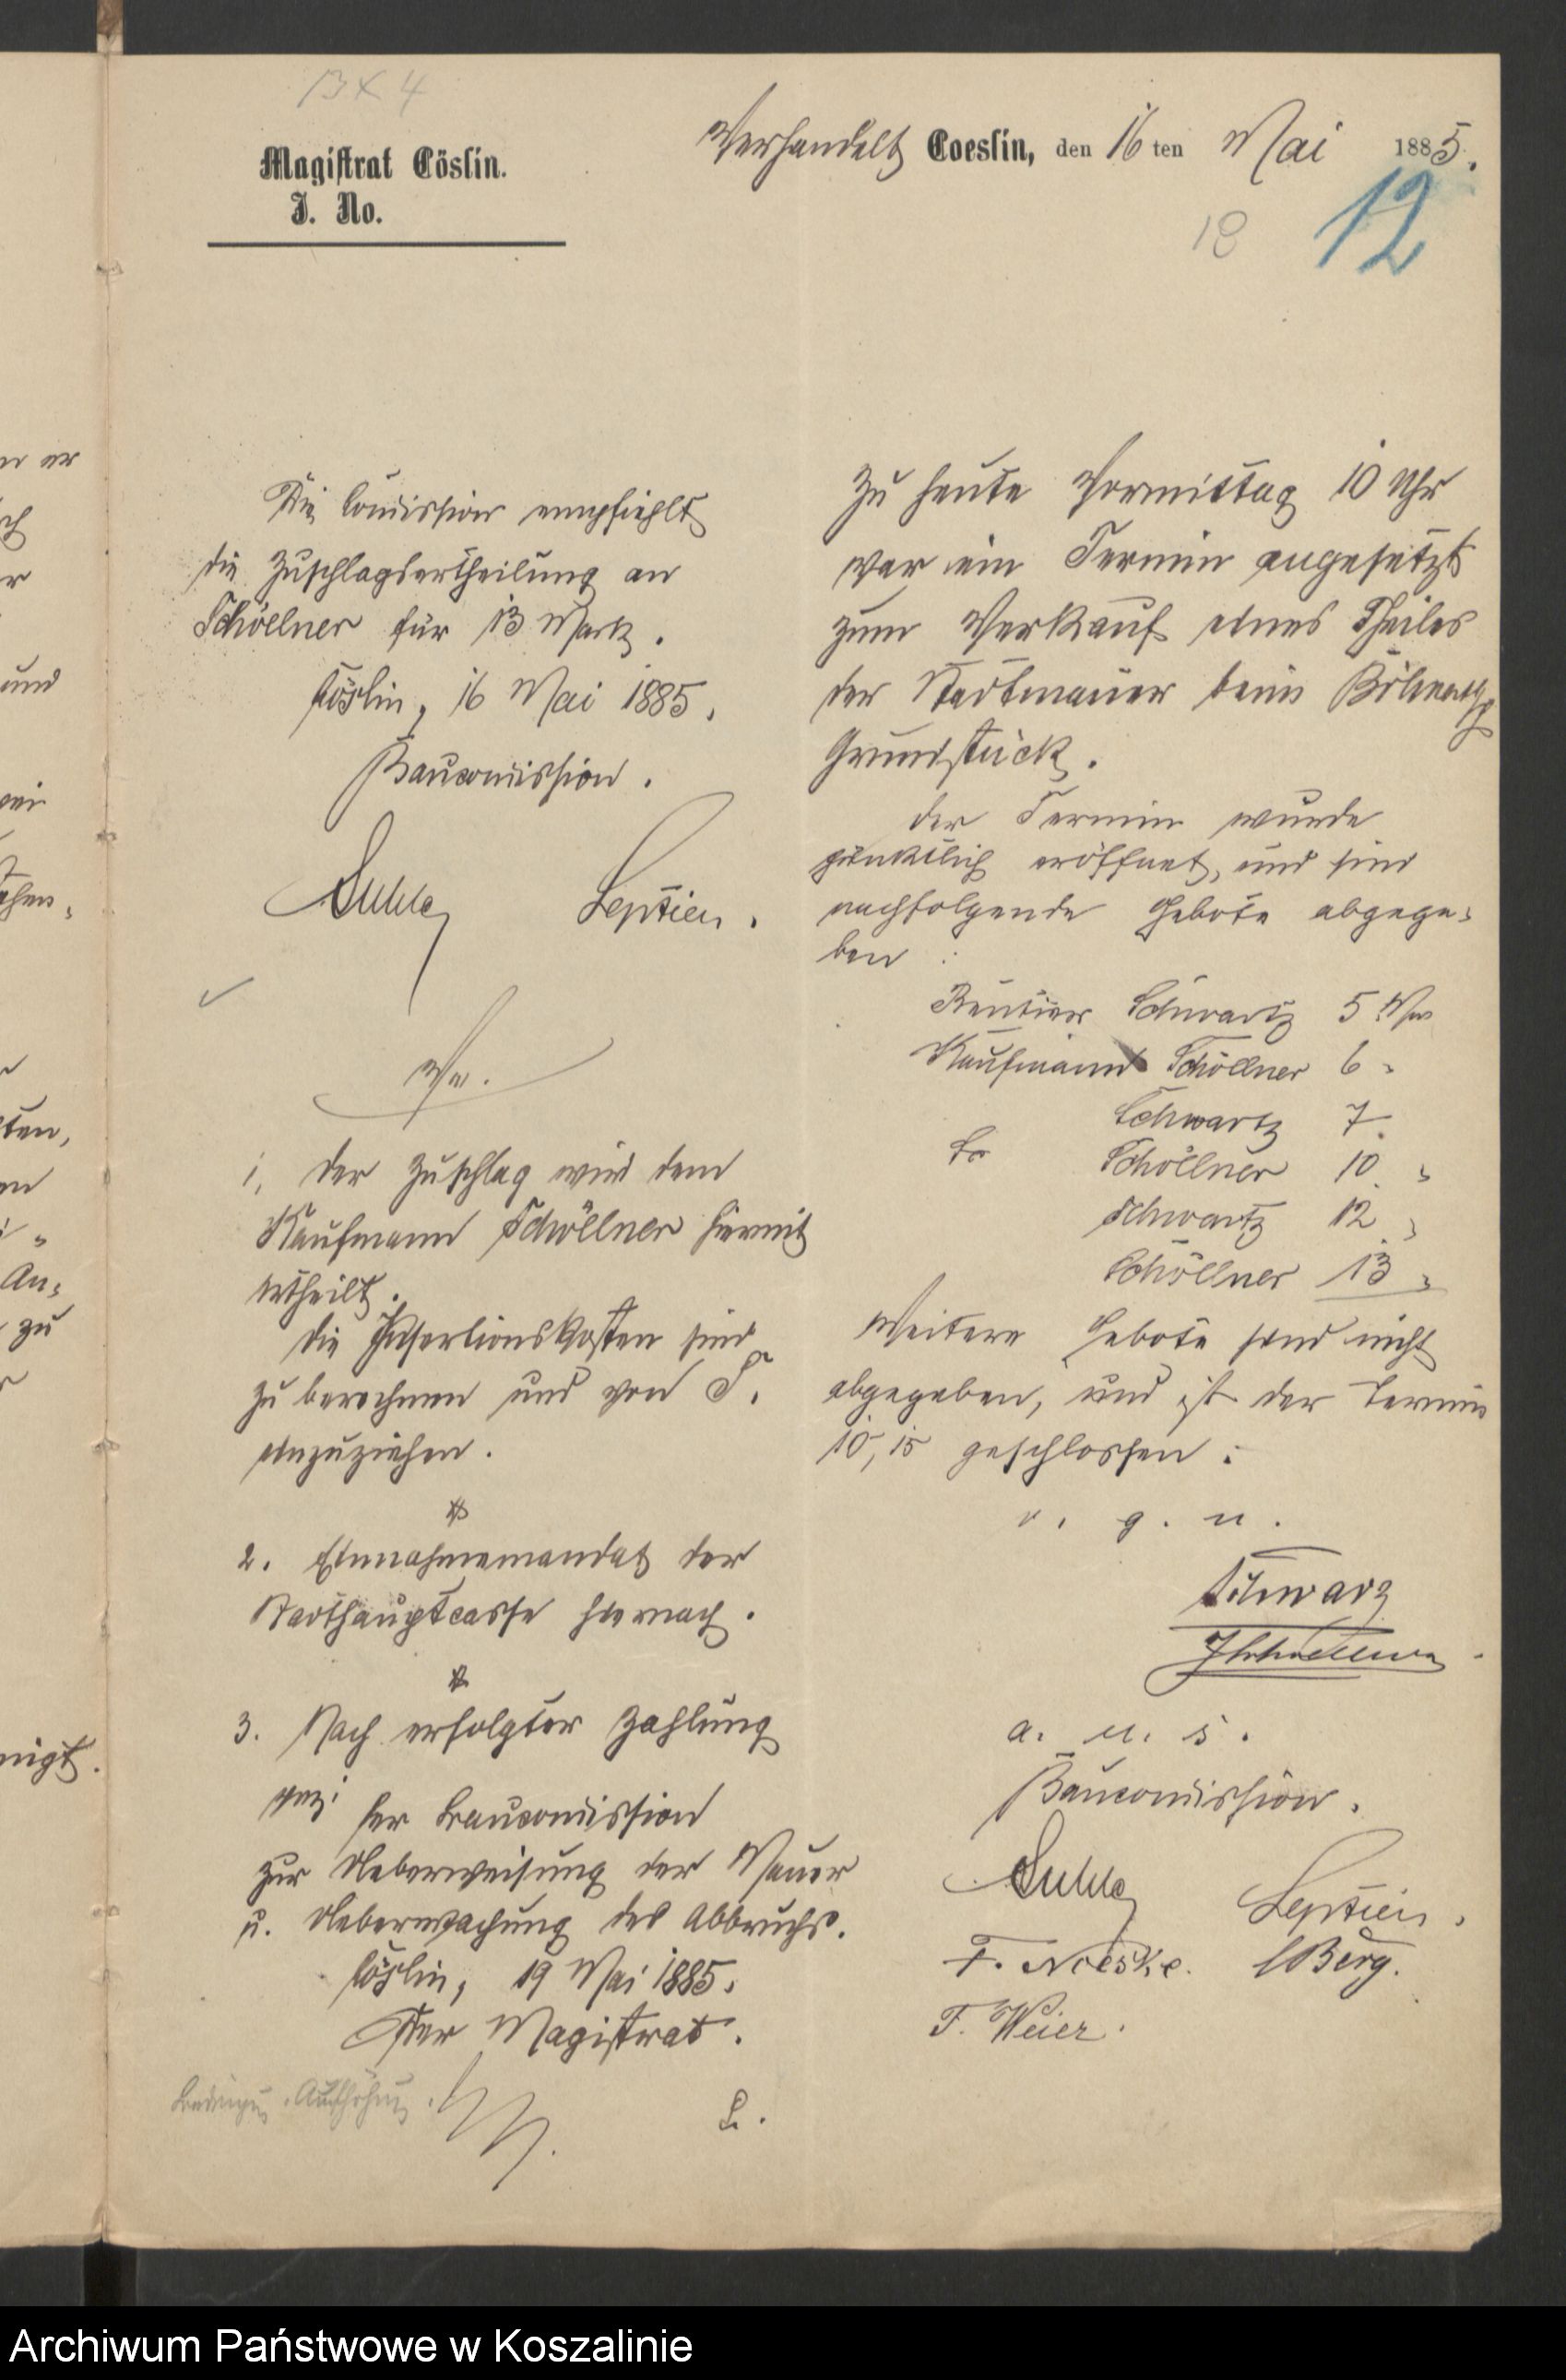 Magistrat Cöslin.
J. No.
Verhandelt Coeslin, den 16 ten Mai 1885.
18
12
Zu heute Vormittag 10 Uhr
war ein Termin angesetzt
zum Verkauf eines Theiles
der Stadtmauer beim
Grundstück.
Der Termin wurde
pünktlich eröffnet, und sind
nachfolgende Gebote abgege-
ben :
Rentier Schwartz 5 M
Kaufmann Schöllner 6 "
Schwartz 7
Schöllner 10 "
Schwartz 12 "
Schöllner 13 "
Weitere Gebote sind nicht
abgegeben, und ist der Termin
10,15 geschlossen.
v. g. u.
Schwarz
a. u. s.
Baucommission.
Leptien.
F. Noeske. Berg.
F. Weier.
Die Commission empfiehlt
die Zuschlagsertheilung an
Schöllner für 13 Mark.
Cöslin, 16 Mai 1885.
Baucommission.
Leptien.
1, Der Zuschlag wird dem
Kaufmann Schöllner hiermit
ertheilt.
Die Insertionskosten sind
zu berechnen und von S.
einzuziehen.
2. Einnahmemandat der
Stadthauptcasse hiernach.
3. Nach erfolgter Zahlung
der Baucommission
zur Ueberweisung der Mauer
u. Ueberwachung des Abbruchs.
Cöslin, 19 Mai 1885.
Der Magistrat.
L.
Archiwum Państwowe w Koszalinie